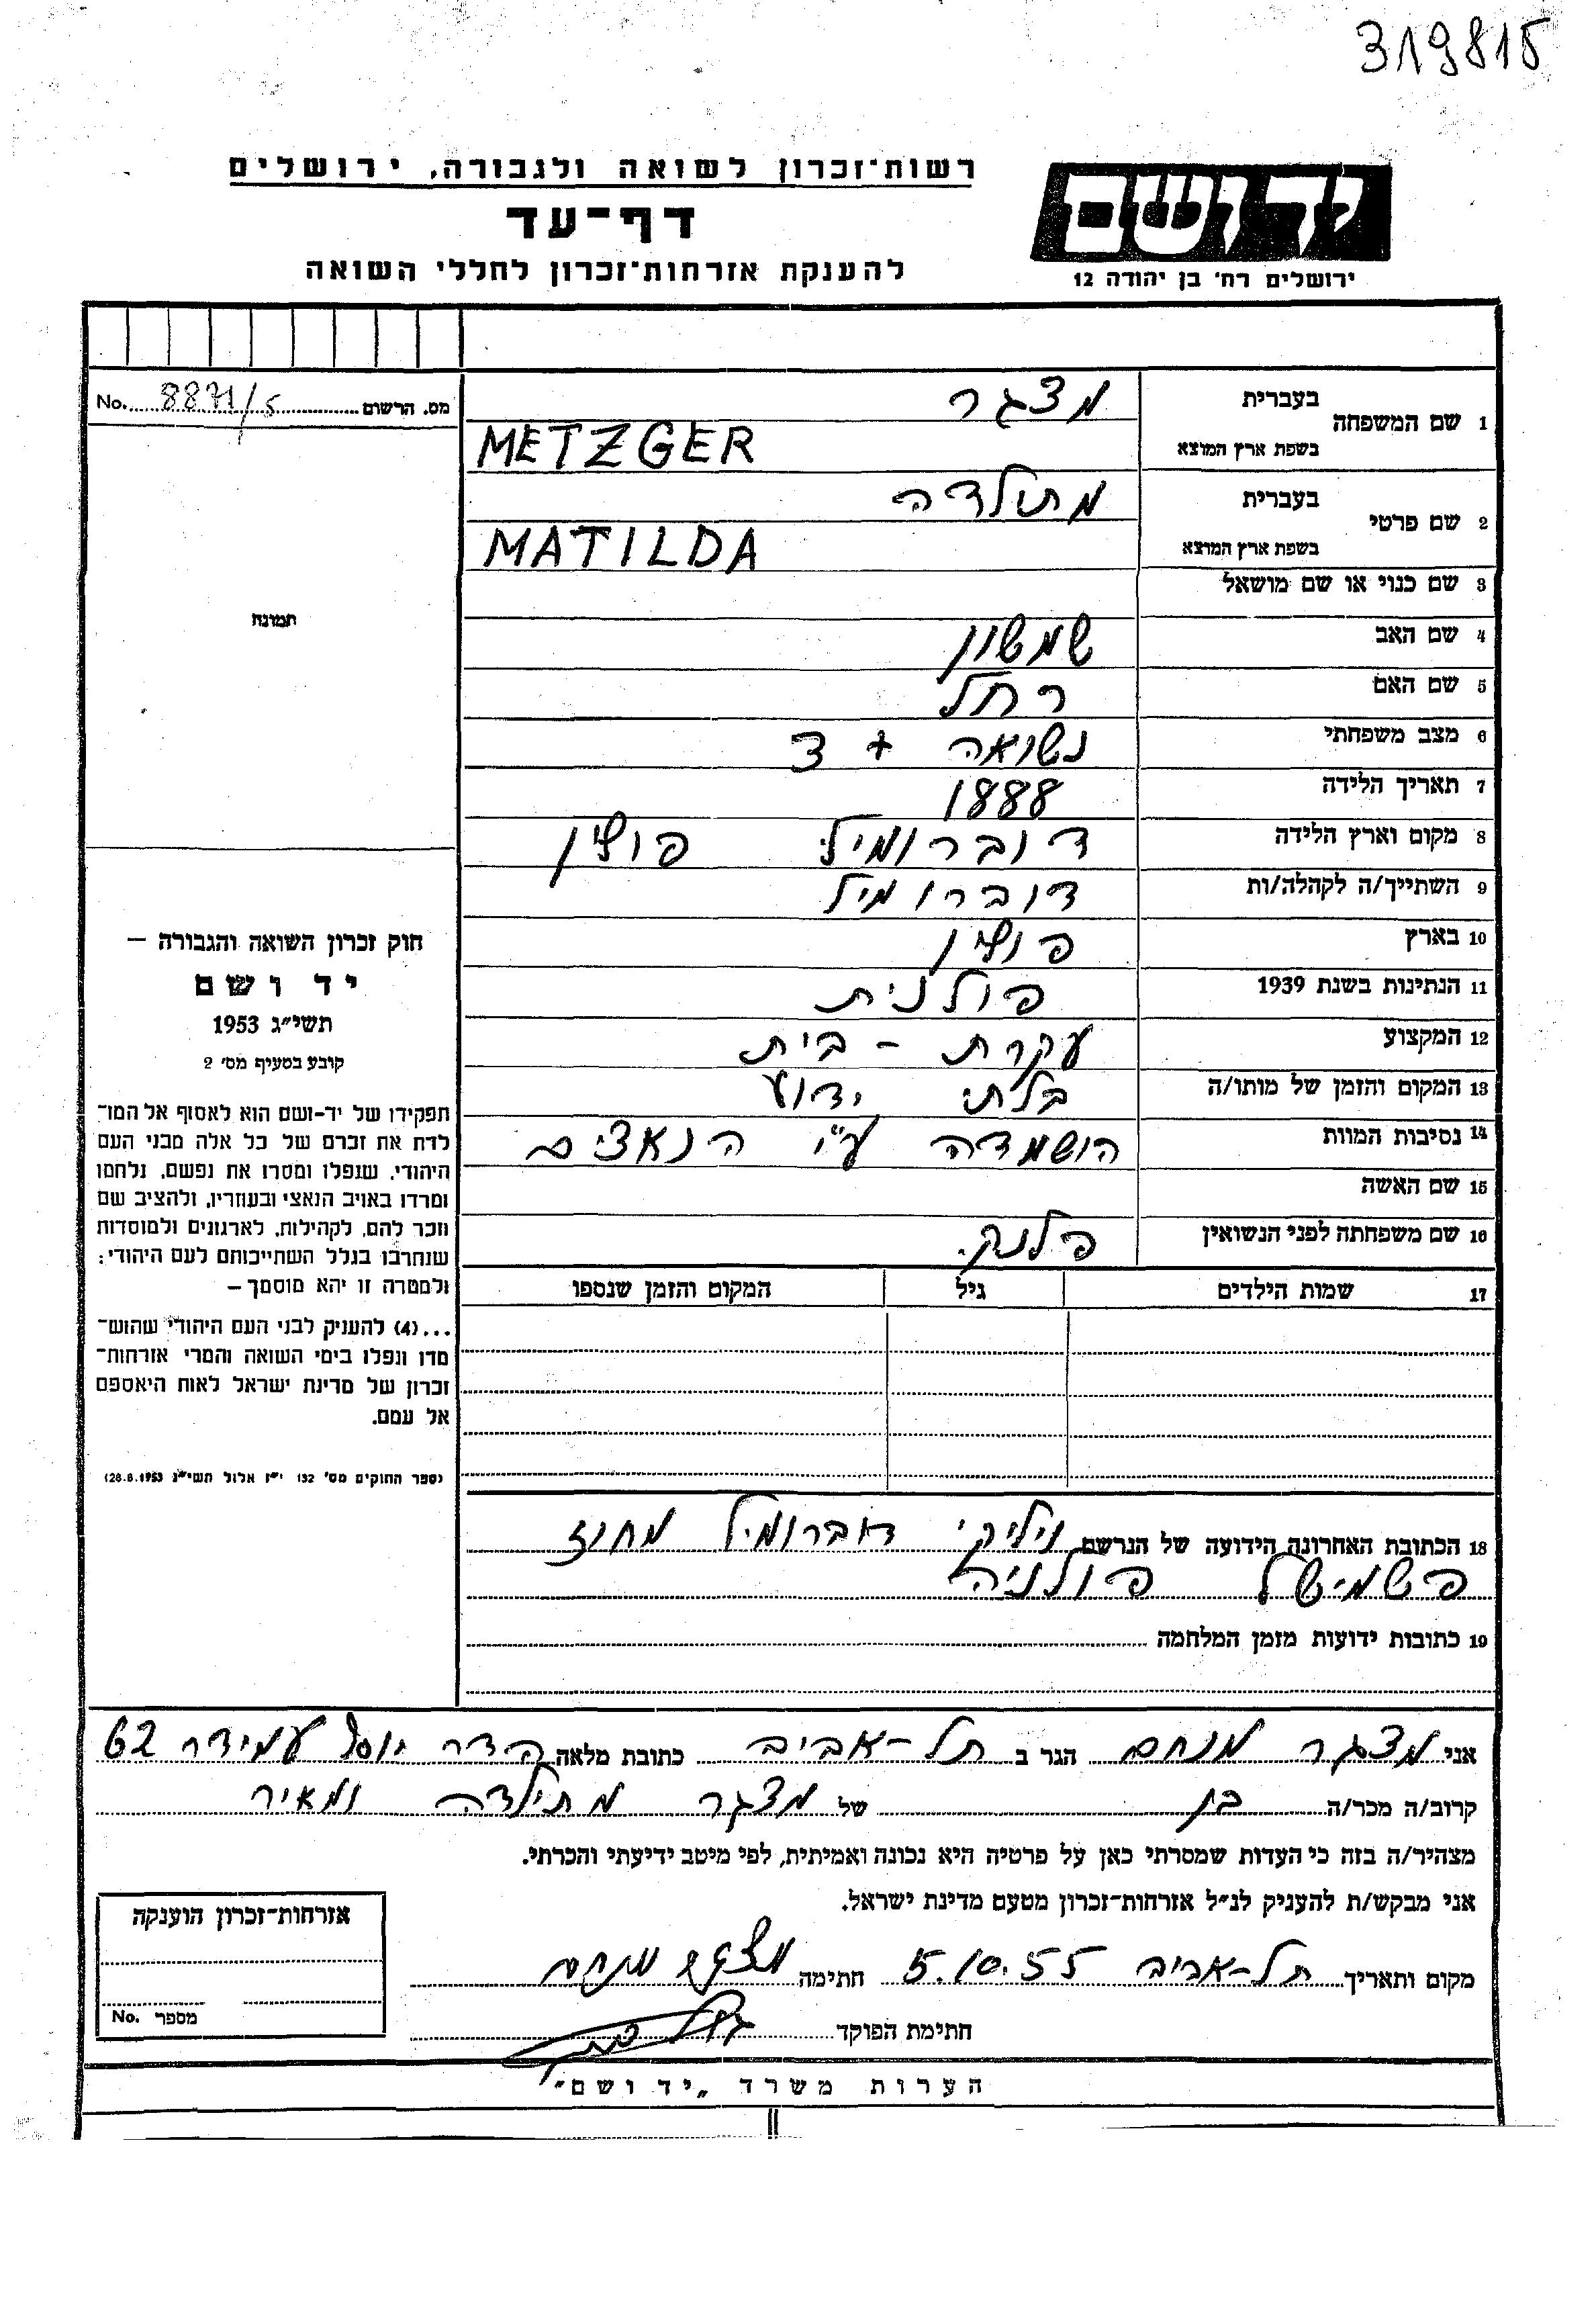 319815
רשות־זכרון לשואה ולגבורה, ירושלים
דף־עד
להענקת אזרחות־זכרון לחללי השואה
יד ושם
ירושלים רח' בן יהודה 12
מס. הרשום No. 8871/5
תמונה
1 שם המשפחה
בעברית מצגר
בשפת ארץ המוצא METZGER
2 שם פרטי
בעברית מתילדה
בשפת ארץ המוצא MATILDA
3 שם כנוי או שם מושאל
4 שם האב שמשון
5 שם האם רחל
6 מצב משפחתי נשואה + 3
7 תאריך הלידה 1888
8 מקום וארץ הלידה דוברומיל פולין
9 השתייך/ה לקהלה/ות דוברומיל
10 בארץ פולין
11 הנתינות בשנת 1939 פולנית
12 המקצוע עקרת - בית
13 המקום והזמן של מותו/ה בלתי ידוע
14 נסיבות המוות הושמדה ע"י הנאצים
15 שם האשה
16 שם משפחתה לפני הנשואין פלנק.
17 שמות הילדים גיל המקום והזמן שנספו
חוק זכרון השואה והגבורה —
יד ושם
תשי״ג 1953
קובע בסעיף מס' 2
תפקידו של יד-ושם הוא לאסוף אל המו־
לדת את זכרם של כל אלה מבני העם
היהודי, שנפלו ומסרו את נפשם, נלחמו
ומרדו באויב הנאצי ובעוזריו, ולהציב שם
וזכר להם, לקהילות, לארגונים ולמוסדות
שנחרבו בגלל השתייכותם לעם היהודי:
ולמטרה זו יהא מוסמך —
...(4) להעניק לבני העם היהודי שהוש־
מדו ונפלו בימי השואה והמרי אזרחות־
זכרון של מדינת ישראל לאות היאספם
אל עמם.
(ספר החוקים מס' 132 י״ז אלול תשי״ג 28.8.1953)
18 הכתובת האחרונה הידועה של הנרשם דוברומיל מחוז
פשמישל פולניה
19 כתובות ידועות מזמן המלחמה
אני מצגר מנחם הגר ב תל-אביב כתובת מלאה הדר יוסף עמידר 62
קרוב/ה מכר/ה בן של מצגר מתילדה ומאיר
מצהיר/ה בזה כי העדות שמסרתי כאן על פרטיה היא נכונה ואמיתית, לפי מיטב ידיעתי והכרתי.
אני מבקש/ת להעניק לנ״ל אזרחות־זכרון מטעם מדינת ישראל.
מקום ותאריך תל-אביב 5.10.55 חתימה מצגר מנחם
חתימת הפוקד
אזרחות־זכרון הוענקה
מספר No.
הערות משרד „יד ושם״